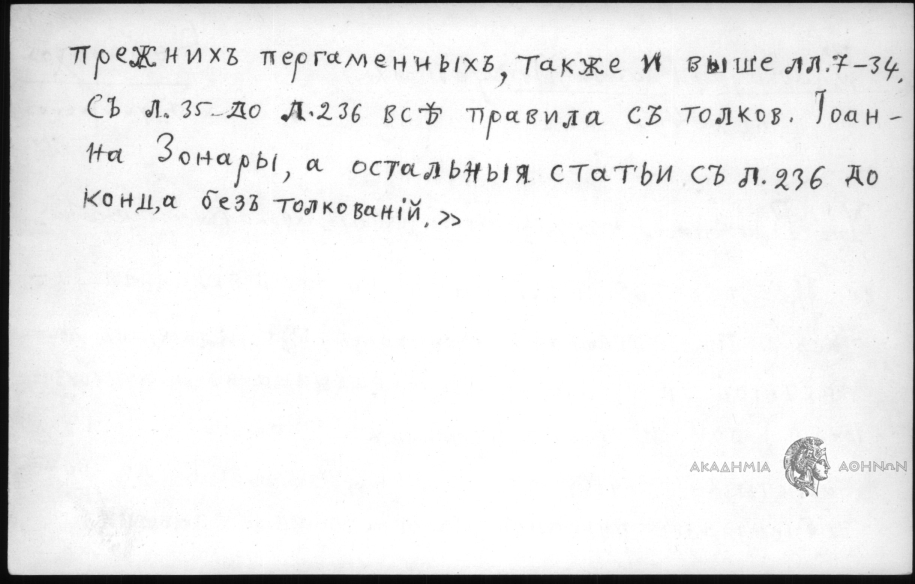 прежнихъ пергаменныхъ, также и выше лл. 7-34.
Съ л. 35-до л. 236 всѣ правила съ толков. Іоан-
на Зонары, а остальныя статьи съ л. 236 до
конца безъ толкованій. »
ΑΚΑΔΗΜΙΑ ΑΘΗΝΩΝ